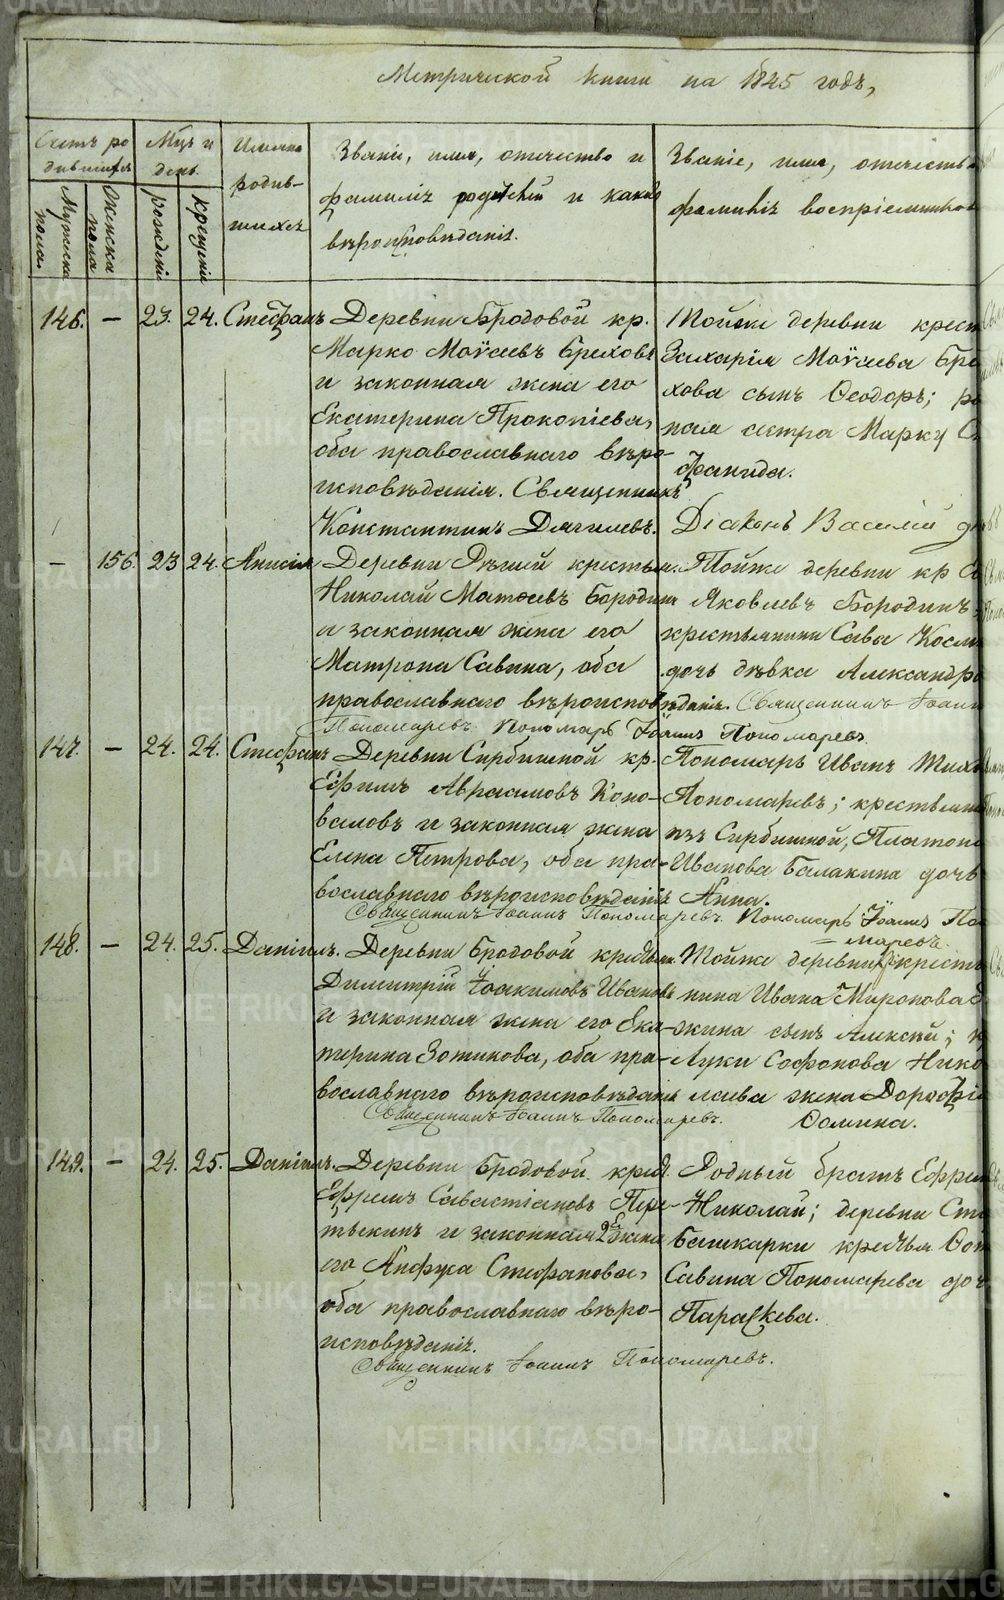 Метрической книги на 1845 годъ,
Счетъ ро
дившихся
Мужеска
пола.
Женска
пола
Мцъ и
день.
рожденія
крещенія
Имена
родив-
шихся
Званіе, имя, отечество и
фамилія родителей и какого
вѣроисповѣданія.
Званіе, имя, отечество
фамилія воспріемниковъ
146. — 23. 24. Стефанъ
Деревни Бродовой кр.
Марко Моѵсеевъ Бреховъ
и законная жена его
Екатерина Прокопіева,
оба православнаго вѣро-
исповѣданія. Священникъ
Константинъ Дягилевъ.
Тойже деревни крест
Захарія Моѵсеева Бре
хова сынъ Ѳеодоръ; ро
ная сестра Марку Ст
фанида.
Діаконъ Василій
— 156. 23 24. Анисія
Деревни Рѣшей крестьян.
Николай Матѳеевъ Бородинъ
и законная жена его
Матрона Савина, оба
православнаго вѣроисповѣданія. Священникъ Іоаннъ
Пономаревъ. Пономарь Іоаннъ Пономаревъ.
Тойже деревни кр
Яковлевъ Бородинъ
крестьянина Савы Косм
дочь дѣвка Александра
147. — 24. 24. Стефанъ
Деревни Сирбишной кр.
Ефимъ Авраамовъ Коно-
валовъ и законная жена
Елена Петрова, оба пра-
вославнаго вѣроисповѣданія
Священникъ Іоаннъ Пономаревъ. Пономарь Іоаннъ По
марева.
Пономарь Иванъ
Пономаревъ; крестьянина
изъ Сирбишной, Платона
Иванова Балакина дочь
Анна.
148. — 24. 25. Даніилъ.
Деревни Бродовой крестьян.
Димитрій Іоакимовъ Ивановъ
и законная жена его Ека-
терина Зотикова, оба пра-
вославнаго вѣроисповѣданія
Священникъ Іоаннъ Пономаревъ.
Тойже деревни кресть
нина Ивана Миронова
жина сынъ Алексѣй;
Луки Софонова Нико
лаева жена Дорофія
Ѳомина.
149. — 24. 25. Даніилъ.
Деревни Бродовой крест.
Ефремъ Савастіановъ Пере-
тѣкинъ и законная 2я жена
его Анфуса Стефанова,
оба православнаго вѣро-
исповѣданія.
Священникъ Іоаннъ Пономаревъ.
Родный братъ Ефрема
Николай; деревни
Башкарки крестьян.
Савина Пономарева доч
Параскева.
METRIKI.GASO-URAL.RU